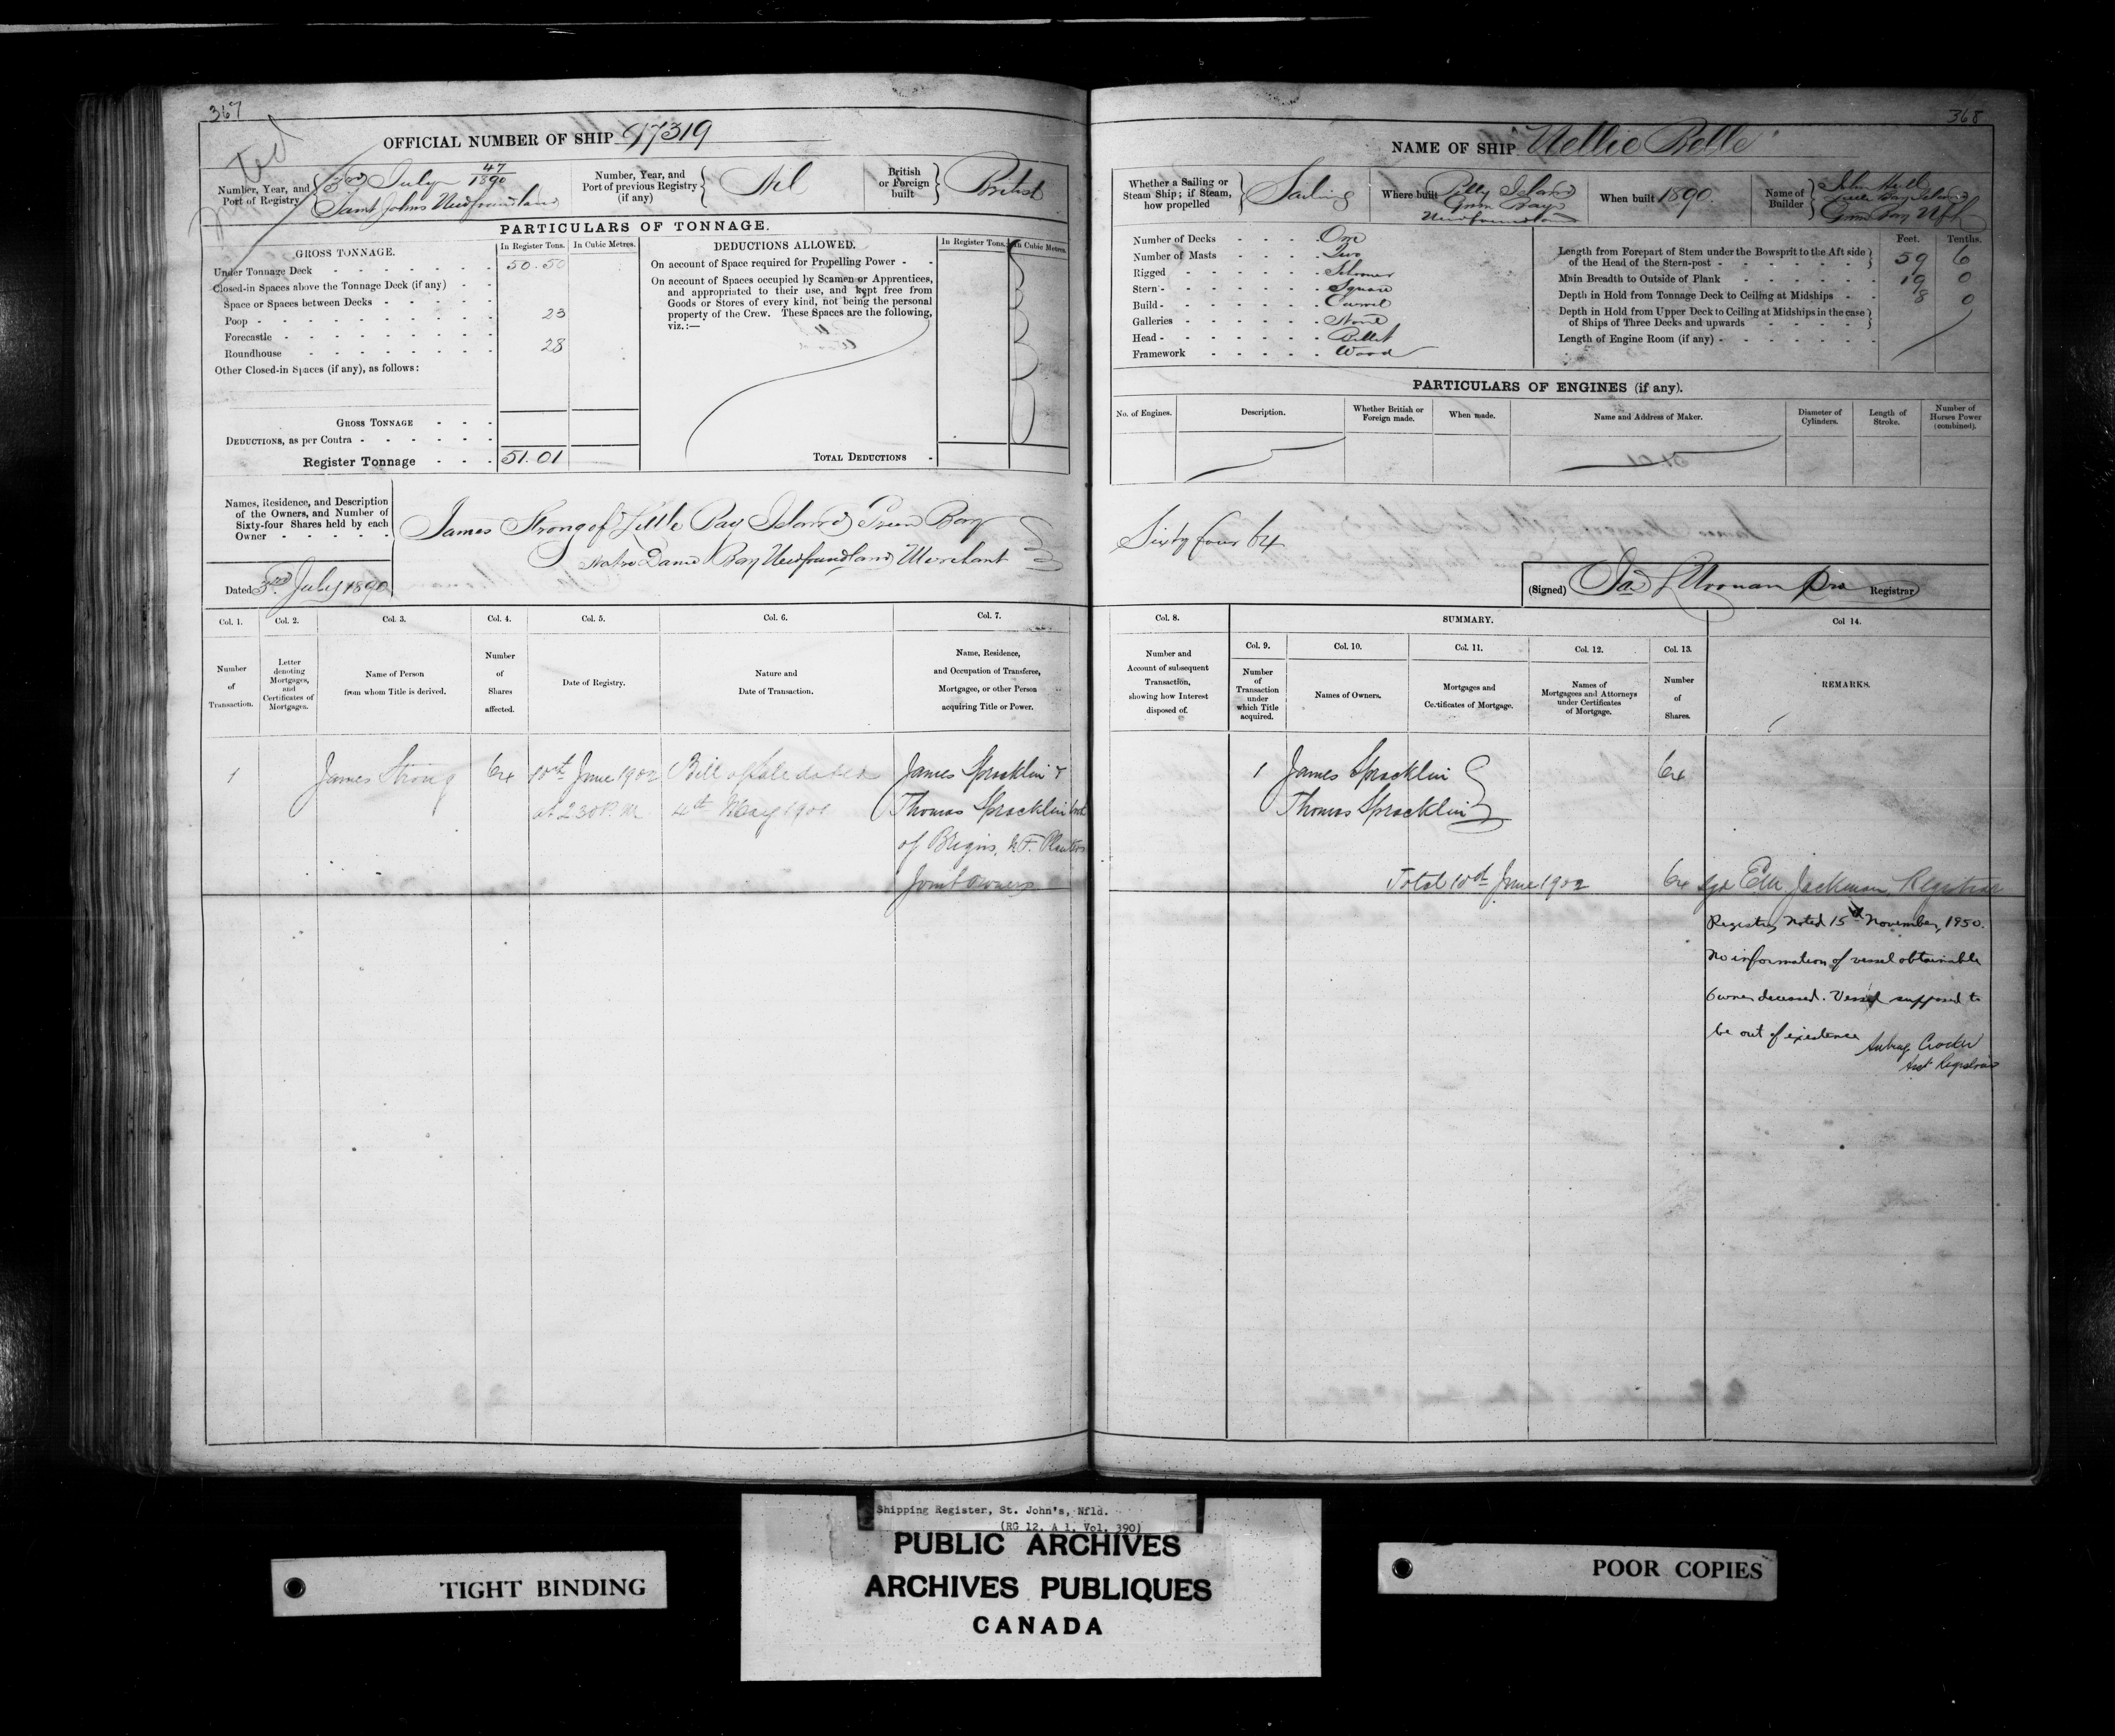 367
OFFICIAL NUMBER OF SHIP 97319
Number, Year, and Port of Registry 3rd July 47/1890 Saint Johns Newfoundland
Number, Year, and Port of previous Registry (if any) Nil
British or Foreign built British
PARTICULARS OF TONNAGE.
GROSS TONNAGE.
In Register Tons. In Cubic Metres.
Under Tonnage Deck 50.50
Closed-in Spaces above the Tonnage Deck (if any)
Space or Spaces between Decks
Poop 23
Forecastle
Roundhouse 28
Other Closed-in Spaces (if any), as follows:
GROSS TONNAGE
DEDUCTIONS, as per Contra
Register Tonnage 51.01
DEDUCTIONS ALLOWED.
In Register Tons. In Cubic Metres.
On account of Space required for Propelling Power
On account of Spaces occupied by Seamen or Apprentices,
and appropriated to their use, and kept free from
Goods or Stores of every kind, not being the personal
property of the Crew. These Spaces are the following,
viz.:—
TOTAL DEDUCTIONS
Names, Residence, and Description
of the Owners, and Number of
Sixty-four Shares held by each
Owner
James Strong of Little Bay Island Green Bay
Notre Dame Bay Newfoundland Merchant
Dated 3rd July 1890
Col. 1. Col. 2. Col. 3. Col. 4. Col. 5. Col. 6. Col. 7.
Number of Transaction.
Letter denoting Mortgages, and Certificates of Mortgages.
Name of Person from whom Title is derived.
Number of Shares affected.
Date of Registry.
Nature and Date of Transaction.
Name, Residence, and Occupation of Transferee, Mortgagee, or other Person acquiring Title or Power.
1 James Strong 64 10th June 1902 Bill of Sale dated James Spracklin &
at 2.30 P.M. 4th May 1901 Thomas Spracklin both
of Brigus, N.F. Planters
Joint owners
368
NAME OF SHIP "Nellie Belle"
Whether a Sailing or Steam Ship; if Steam, how propelled Sailing
Where built Pilly Island Green Bay Newfoundland
When built 1890.
Name of Builder John Hull Little Bay Island Green Bay Nfld
Number of Decks One
Number of Masts Two
Rigged Schooner
Stern Square
Build Carvel
Galleries None
Head Billet
Framework Wood
Feet. Tenths.
Length from Forepart of Stem under the Bowsprit to the Aft side of the Head of the Stern-post 59 6
Main Breadth to Outside of Plank 19 0
Depth in Hold from Tonnage Deck to Ceiling at Midships 8 0
Depth in Hold from Upper Deck to Ceiling at Midships in the case of Ships of Three Decks and upwards
Length of Engine Room (if any)
PARTICULARS OF ENGINES (if any).
No. of Engines. Description. Whether British or Foreign made. When made. Name and Address of Maker. Diameter of Cylinders. Length of Stroke. Number of Horses Power (combined).
Sixty four 64
(Signed) Registrar
Col. 8. SUMMARY. Col 14.
Col. 9. Col. 10. Col. 11. Col. 12. Col. 13.
Number and Account of subsequent Transaction, showing how Interest disposed of.
Number of Transaction under which Title acquired.
Names of Owners.
Mortgages and Certificates of Mortgage.
Names of Mortgagees and Attorneys under Certificates of Mortgage.
Number of Shares.
REMARKS.
1 James Spracklin 64
Thomas Spracklin
Total 10th June 1902 64 Sgd Jackman, Registrar
Registry Noted 15th November, 1950.
No information of vessel obtainable
Owner deceased. Vessel supposed to
be out of existence
Aubrey Crocker
Asst Registrar
Shipping Register, St. John's, Nfld.
(RG 12, A 1, Vol. 390)
PUBLIC ARCHIVES
ARCHIVES PUBLIQUES
CANADA
TIGHT BINDING
POOR COPIES